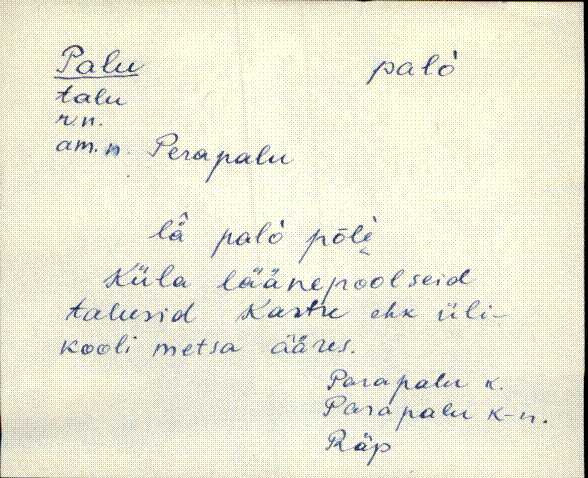 Palu paló
talu
r.n.
am.n. Perapalu
lâ paló põlè
Küla läänepoolseid
talusid Kastre ehk üli-
kooli metsa ääres.
Parapalu k.
Parapalu k-n.
Räp